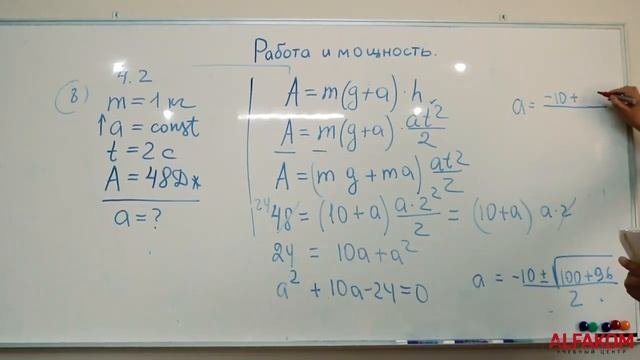 Работа и мощность.
4.2
8)
m = 1 кг
↑a = const
t = 2 с
A = 48 Дж
a = ?
A = m(g+a)·h
A = m(g+a)·at²/2
A = (mg+ma)at²/2
24 48 = (10+a)a·2²/2 = (10+a)a·2
24 = 10a+a²
a² + 10a-24=0
a = -10±
a = -10±√100+96/2
ALFAKOM
УЧЕБНЫЙ ЦЕНТР